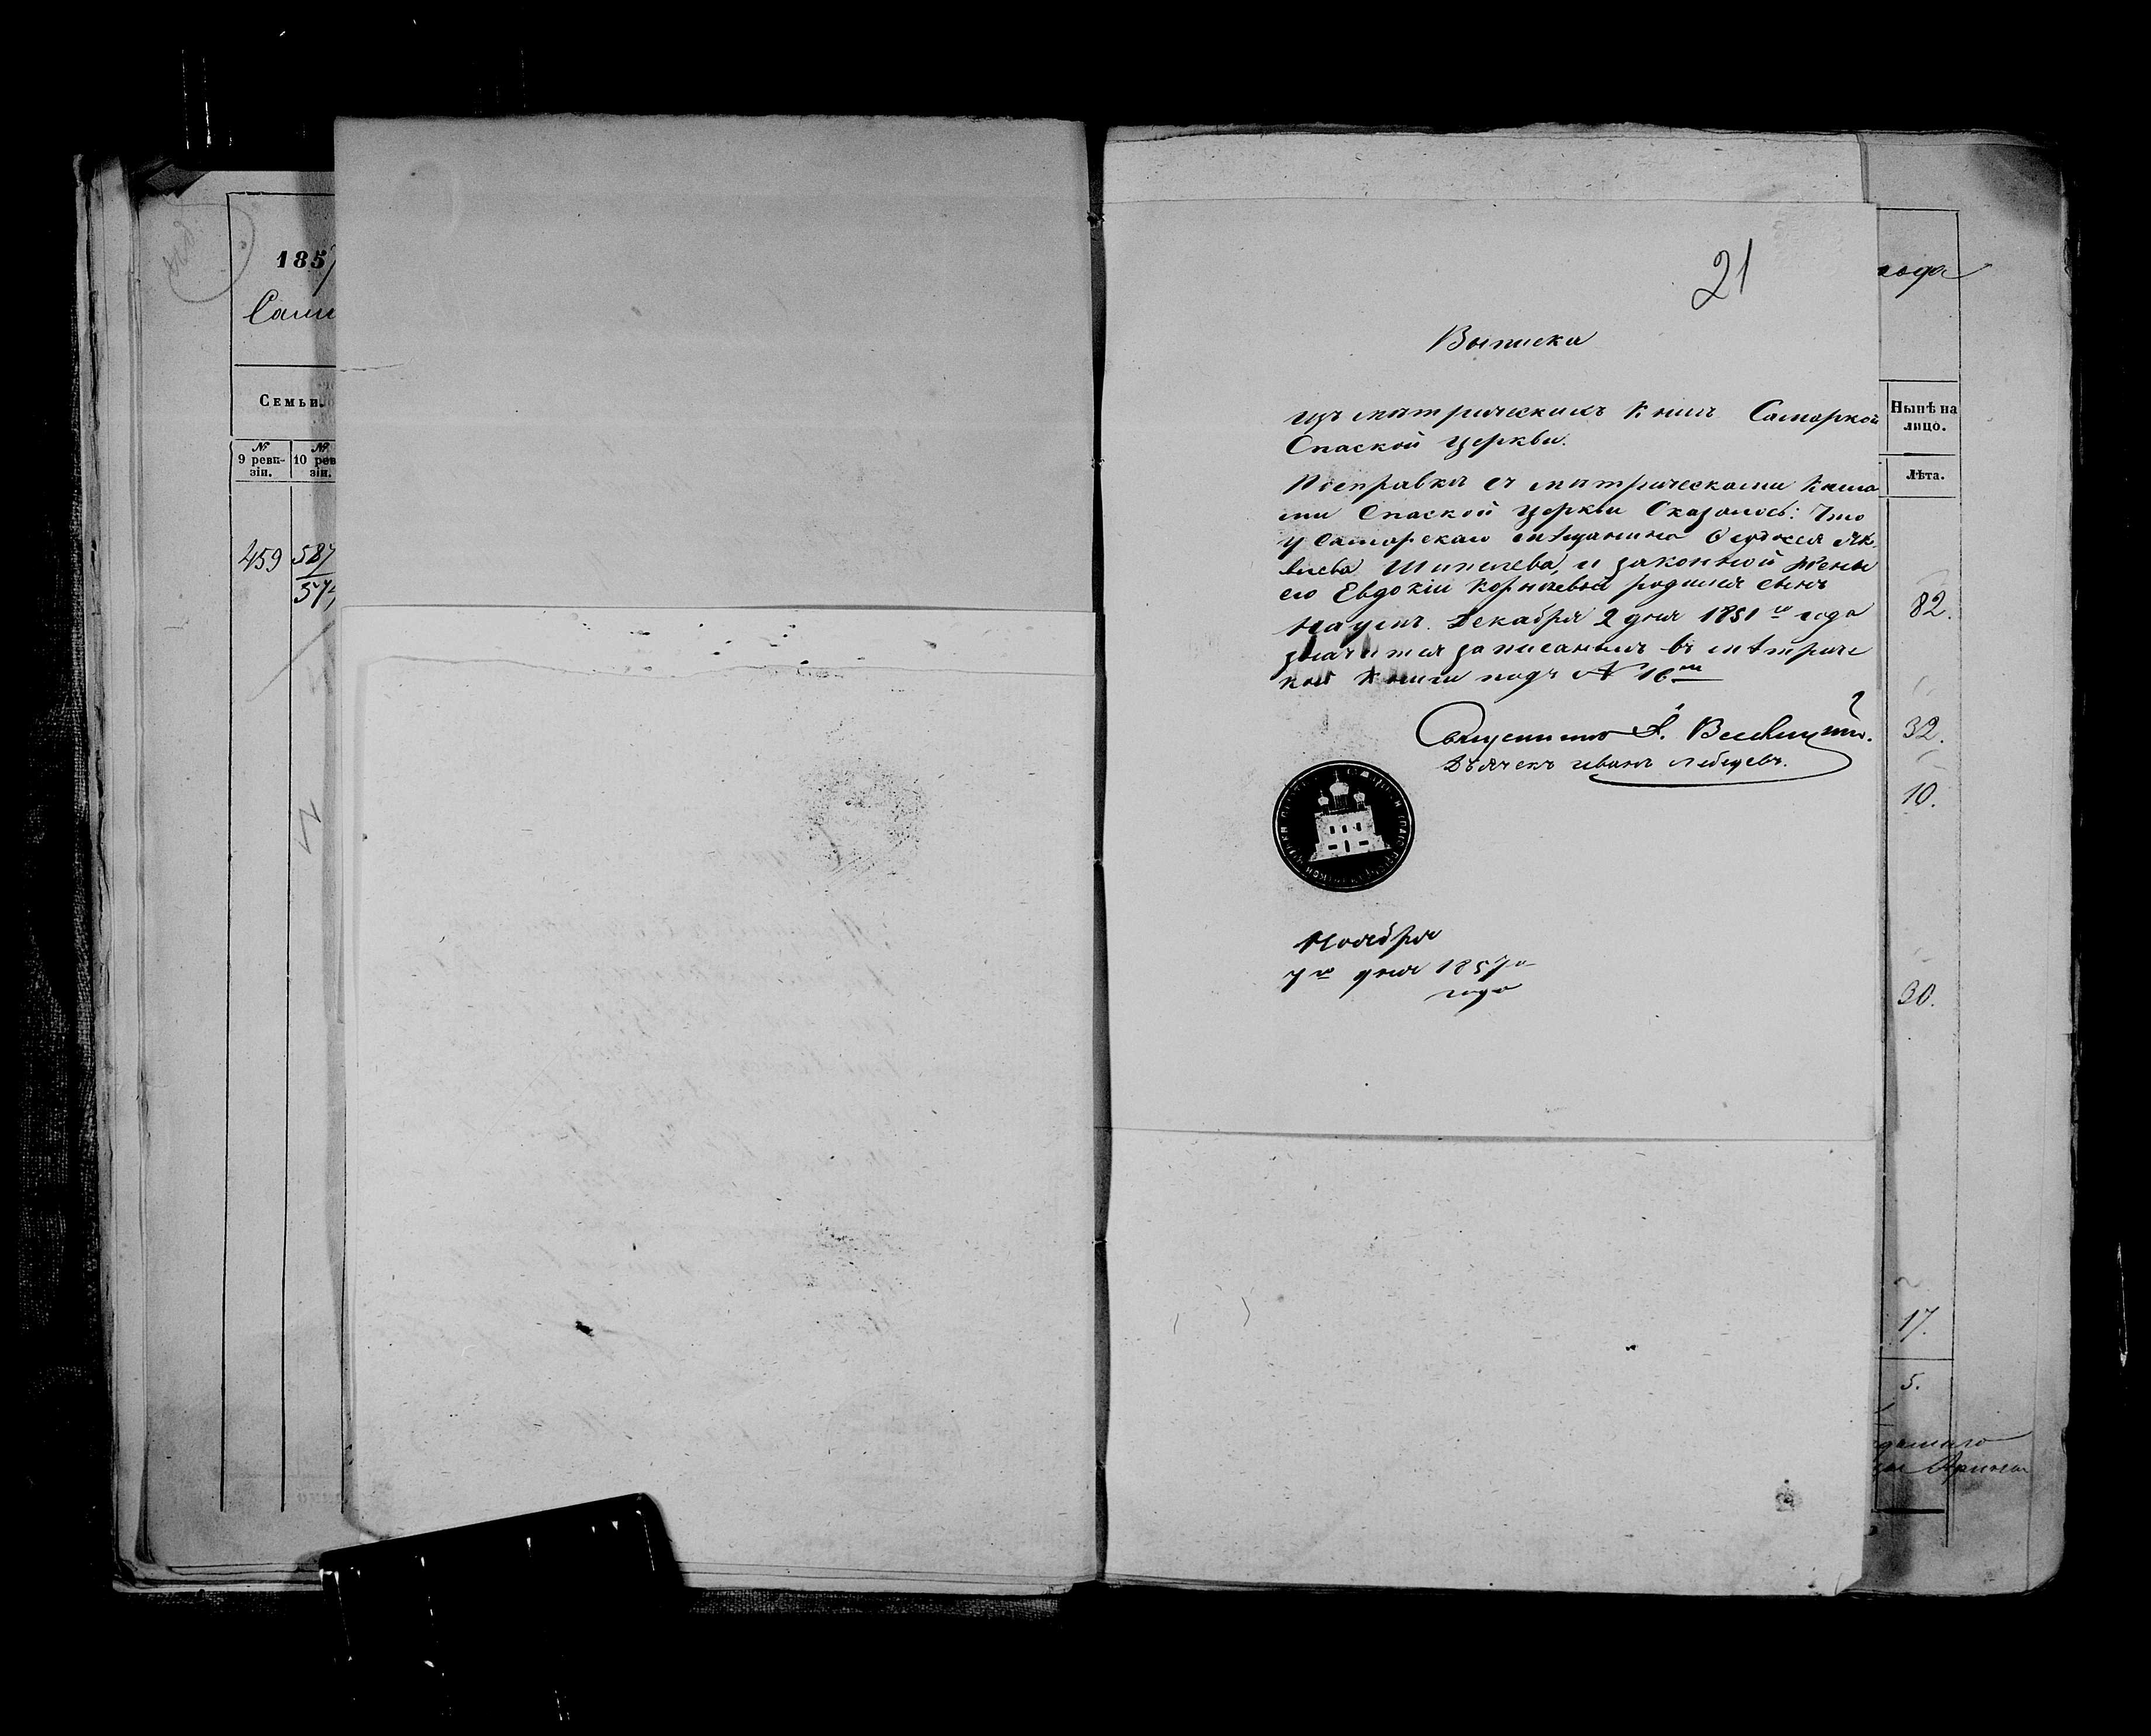 1857
Семьи.
№
9 реви-
зіи.
№
10 рев
зіи.
459 587
574
21
Выписка
изъ метрическихъ книгъ Саморкой
Спаской церкви.
По справки съ метрическами книга
ми Спаской церкви Оказалось: Что
у Саморскаго мѣщанина Як
влева Шипилева, и законной жены
его Евдокіи Корнѣевой родился сынъ
Наумъ. Декабря 2 дня 1851 го года
значится записанымъ въ мѣтриче
кой книги подъ № 16
Священникъ
Дьячекъ Иванъ Лебедевъ.
Ноября
7 го дня 1857 го
года
года
Нынѣ на
лицо.
Лѣта.
82.
32.
10.
30.
17.
5.